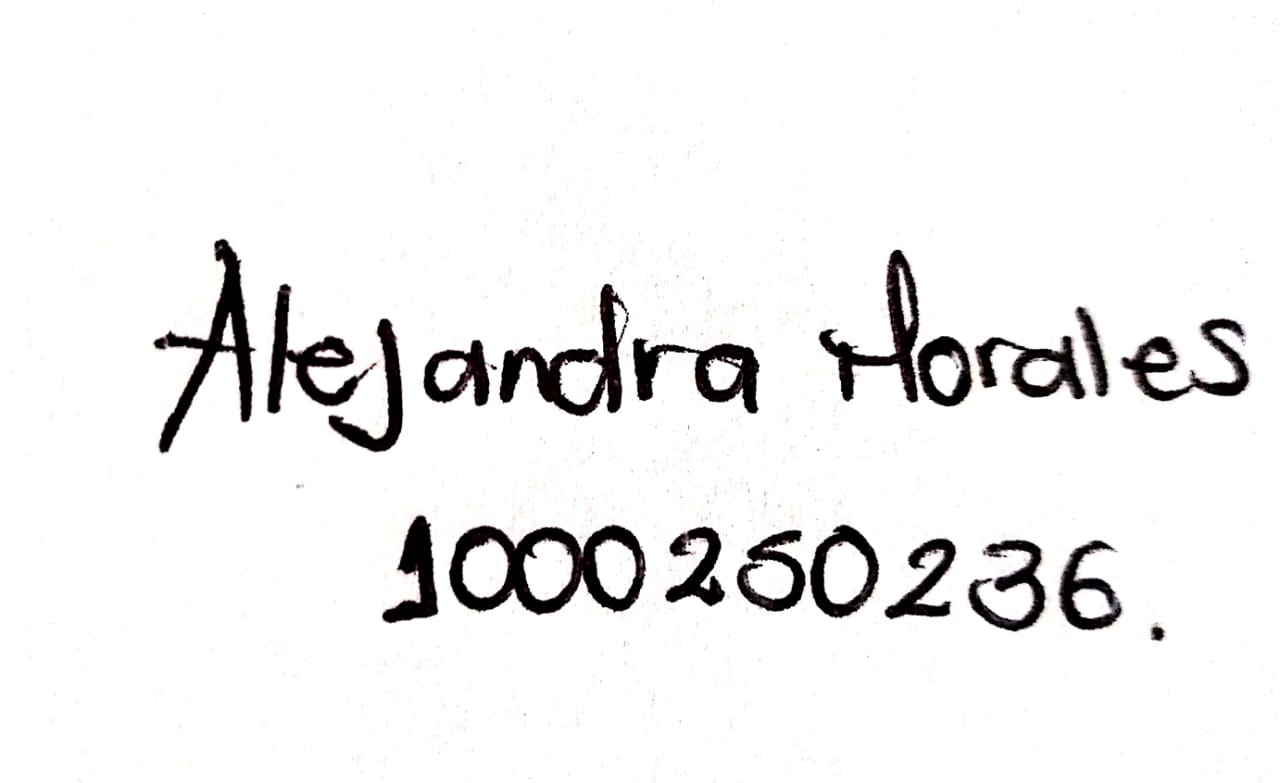 Alejandra Morales
1000250236.